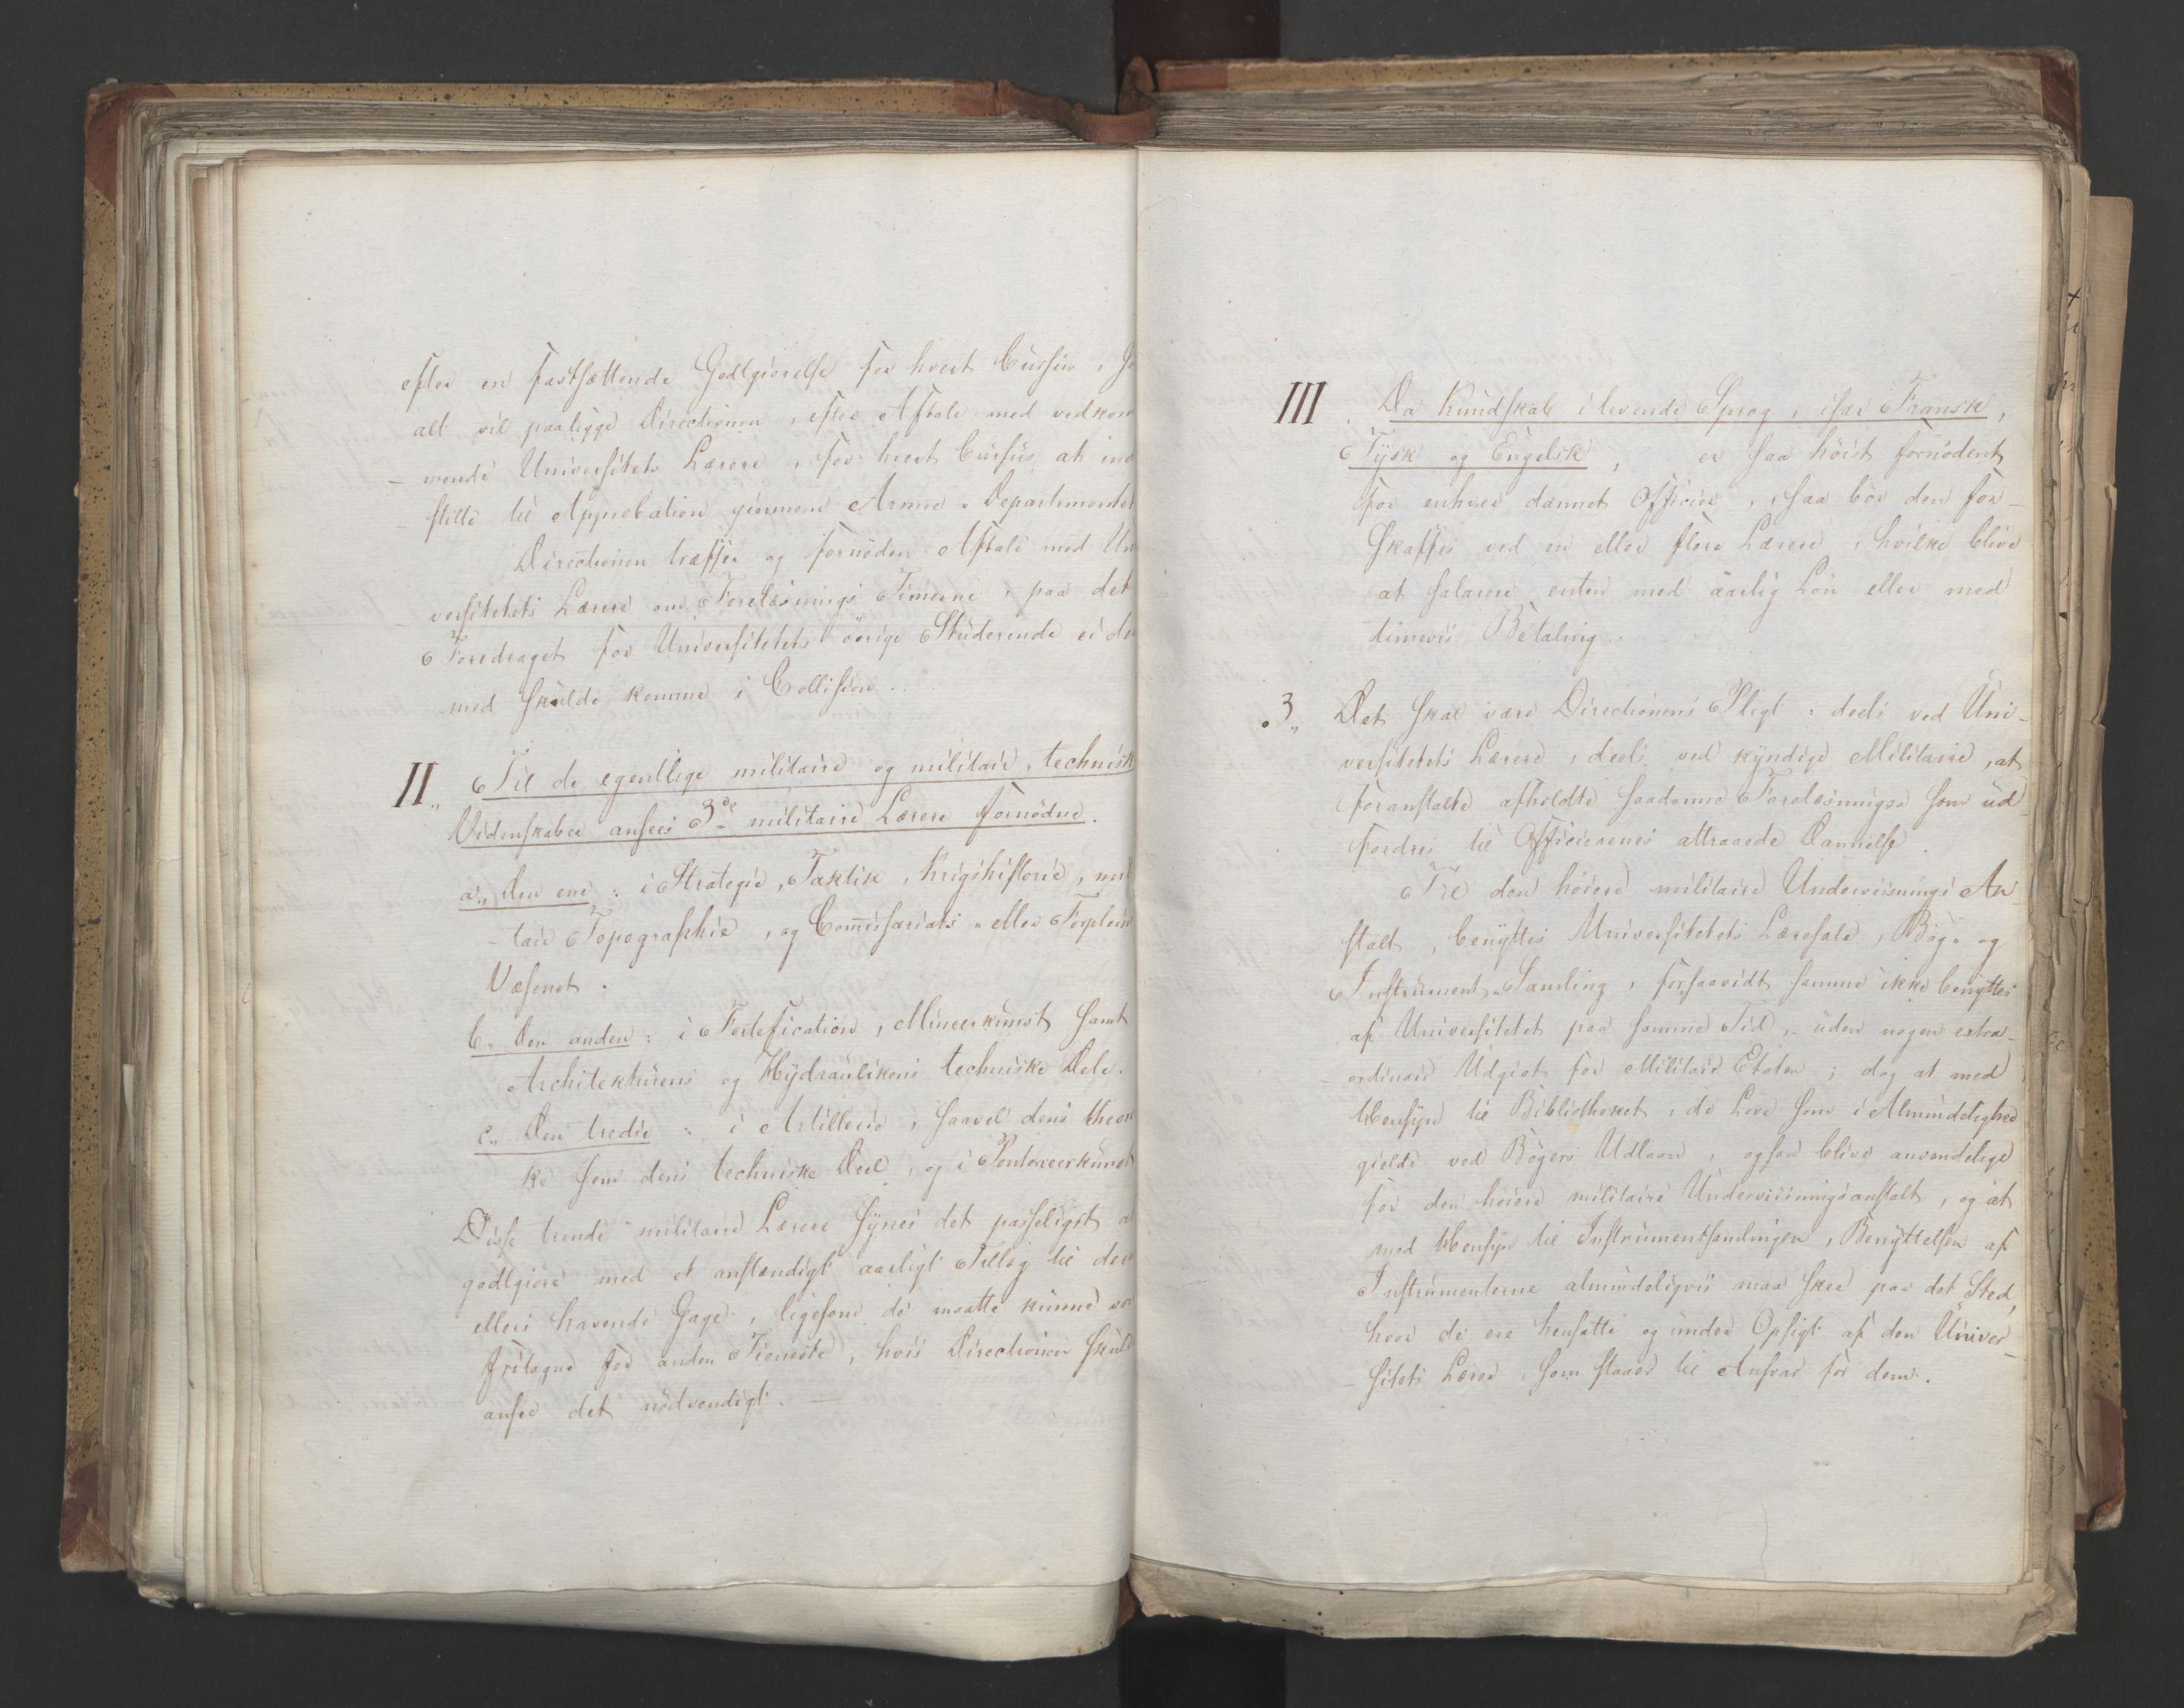 efter en fastsættende Godtgiörelse for hvert Cursus,
alt vil paaligge Directionen, efter Aftale med vedkom
mende Universitets Lærere, for hvert Cursus at ind
stille til Approbation giennem Armee-Departementet
Directionen træffer og fornöden Aftale med Uni
versitetets Lærere om Forelæsnings Timerne, paa det
Foredraget for Universitetets övrige Studerende ei der
med skulde komme i Collision.
II„ Til de egentlige militaire og militair-technisk
Videnskaber ansees 3de militaire Lærere fornödne.
a„ Den ene: i Strategie, Taktik, Krigshistorie, mili
-tair Topographie, og Commissariats- eller Forpleinings
Væsenet.
b„ Den anden: i Fortification, Mineerkunst samt
Architekturens og Hydraulikens techniske Dele.
c„ Den tredie: i Artillerie, saavel dens theoretis
ke som dens techniske Deel, og i Pontoneerkunst
Disse trende militaire Lærere synes det passeligst a
godtgiöre med et anstændigt aarligt Tillæg til den
ellers havende Gage, ligesom de maatte kunne vor
fritagne for anden Tieneste, hvis Directionen skuld
ansee det nödvendigt. —
III. Da Kundskab i levende Sprog, især Fransk,
Tysk og Engelsk, er saa höist fornödent
for enhver dannet Officier, saa bör den for-
skaffes ved en eller flere Lærere, hvilke blive
at salarere enten med aarlig Lön eller med
timeviis Betaling.
3„ Det skal være Directionens Pligt: deels ved Uni-
versitetets Lærere, deels ved kyndige Militaire, at
foranstalte afholdte saadanne Forelæsninger som ud-
fordres til Officierenes attraaede Dannelse.
Til den höiere militaire Underviisnings An-
stalt, benyttes Universitetets Læresale, Bog- og
Instrument-Samling, forsaavidt samme ikke benyttes
af Universitetet paa samme Tid, uden nogen extra-
-ordinair Udgivt for Militair Etaten; dog at med
Hensyn til Bibliotheket, de Love som i Almindelighed
gielde ved Bögers Udlaan, ogsaa blive anvendelige
for den höiere militaire Underviisningsanstalt, og at
med Hensyn til Instrumentsamlingen, Benyttelsen af
Instrumenterne almindeligviis maa skee paa det Sted,
hvor de ere hensatte og under Opsigt af den Univer-
-sitets Lærer, som staaer til Ansvar for dem.